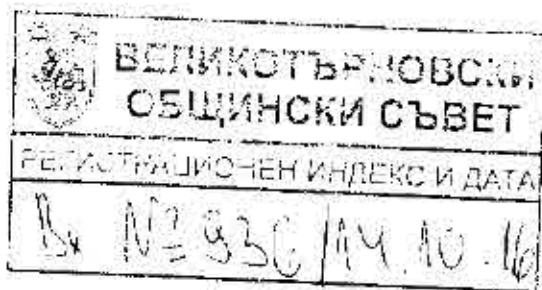 ВЕЛИКОТЪРНОВСКИ
ОБЩИНСКИ СЪВЕТ
РЕГИСТРАЦИОНЕН ИНДЕКС И ДАТА
Вх № 936 / 14.10.16